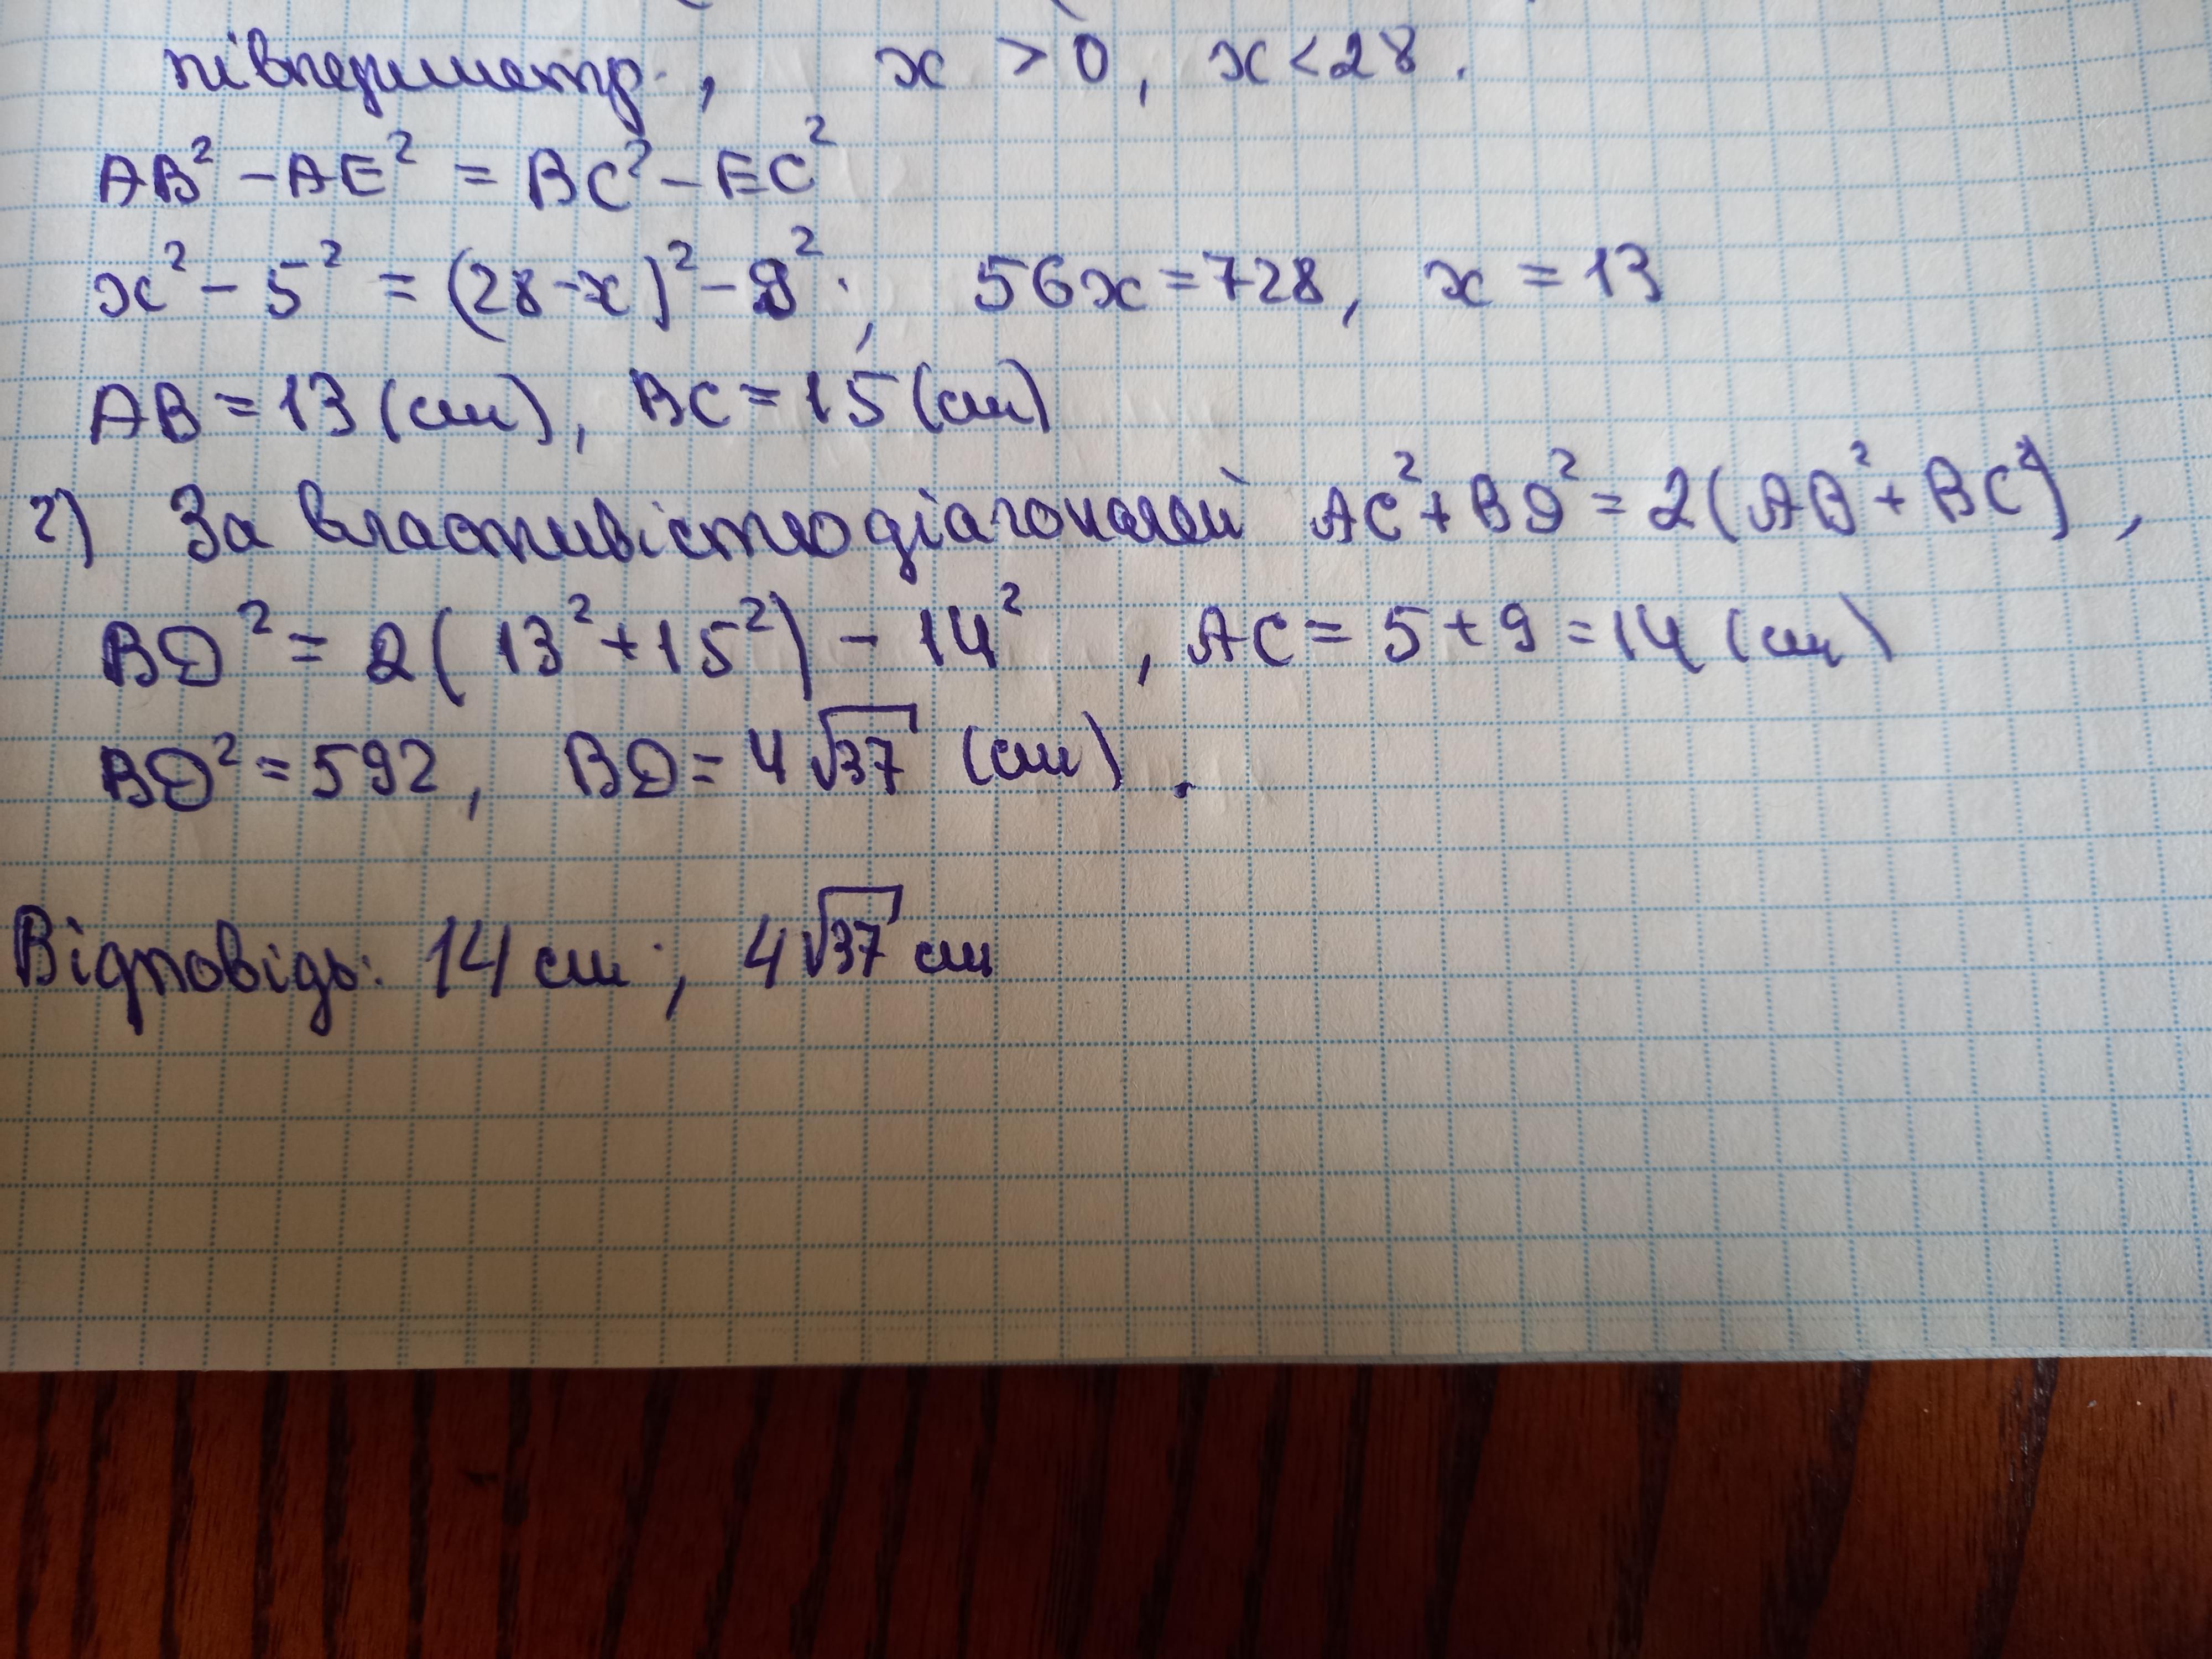 півпериметр, x > 0, x < 28.
AB² - AE² = BC² - EC²
x² - 5² = (28-x)² - 9²; 56x = 728, x = 13
AB = 13 (см), BC = 15 (см)
2) За властивістю діагоналей AC² + BD² = 2(AB² + BC²),
BD² = 2(13² + 15²) - 14², AC = 5 + 9 = 14 (см)
BD² = 592, BD = 4√37 (см).
Відповідь: 14 см; 4√37 см